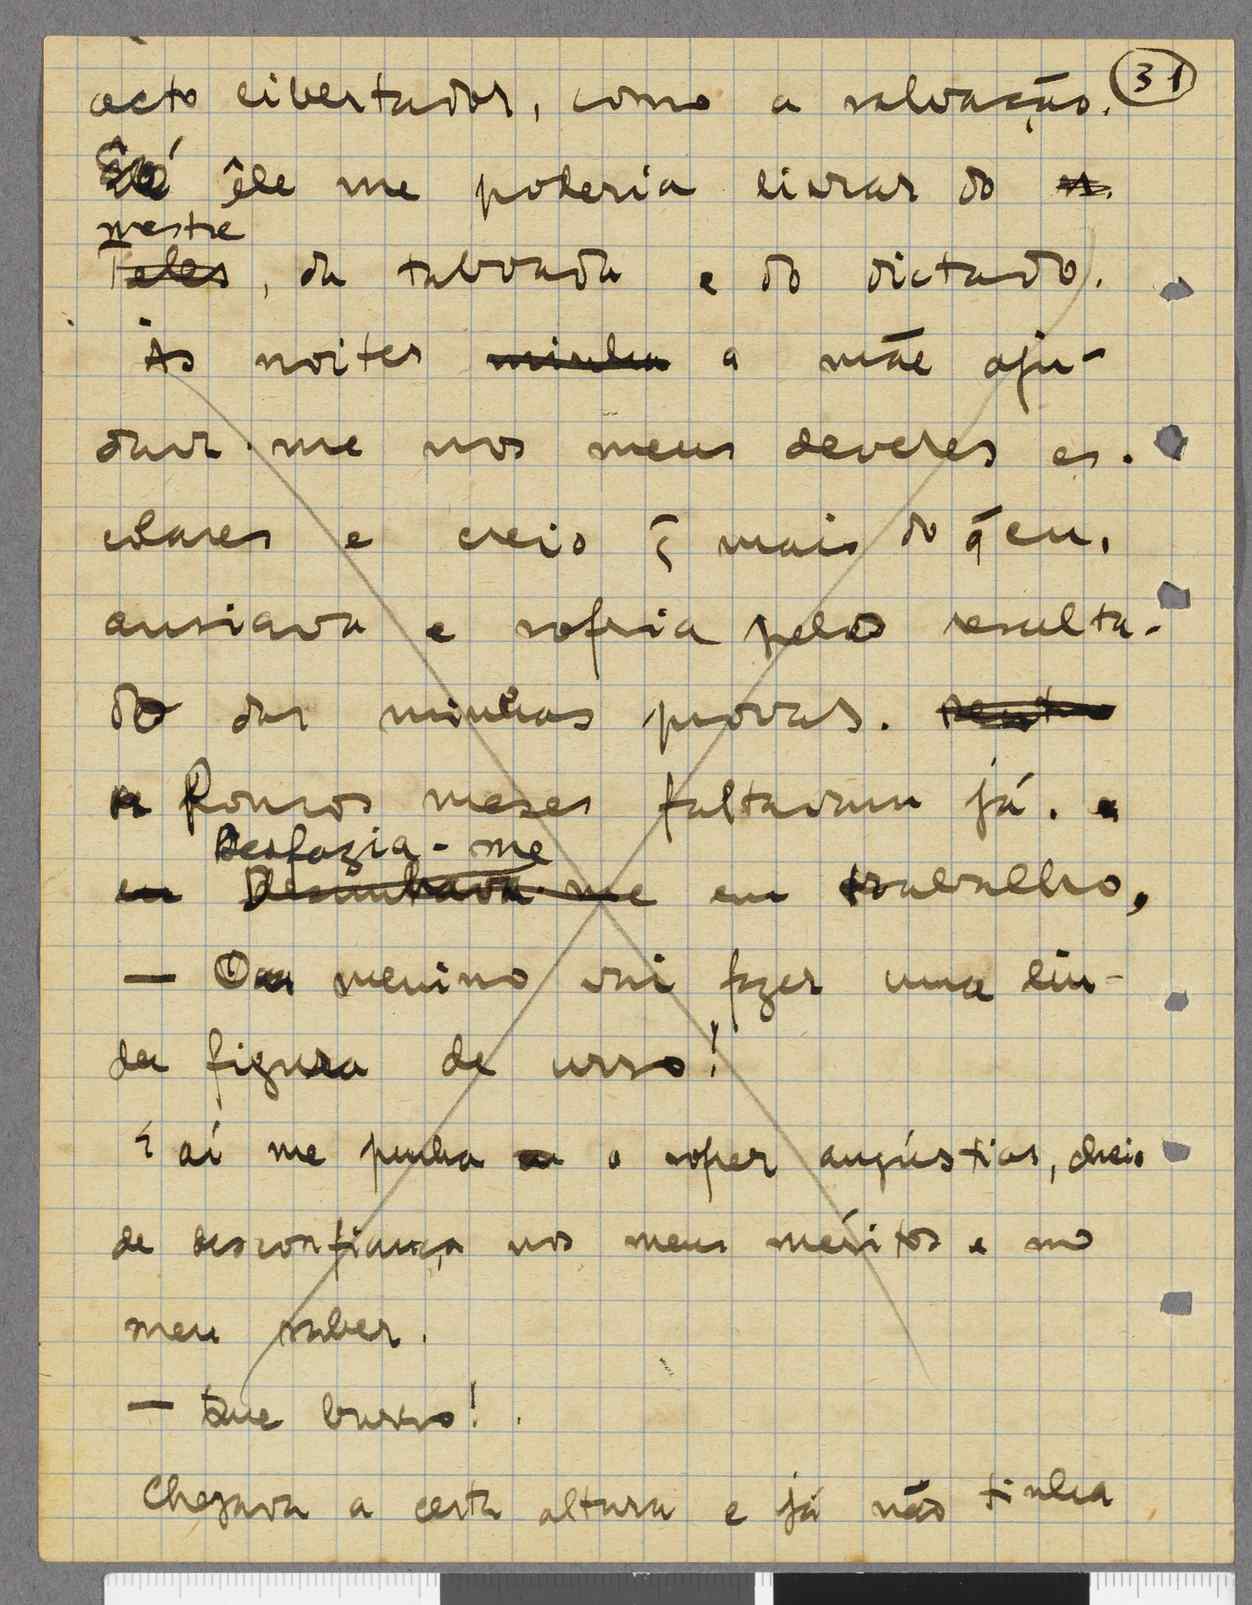 31
acto libertador, como a salvação.
Só êle me poderia livrar do
mestre
Teles, da taboada e do dictado.
Às noites minha a mãe aju-
dava-me nos meus deveres es-
colares e creio q̃ mais do q̃ eu,
ansiava e sofria pelo resulta-
do das minhas provas.
Poucos meses faltavam já.
Desfazia-me
em me em trabalho,
— O menino vai fazer uma lin-
da figura de urso!
E aí me punha a sofrer angústias, cheio
de desconfiança nos meus méritos e no
meu saber.
— Que burro!
Chegava a certa altura e já não tinha